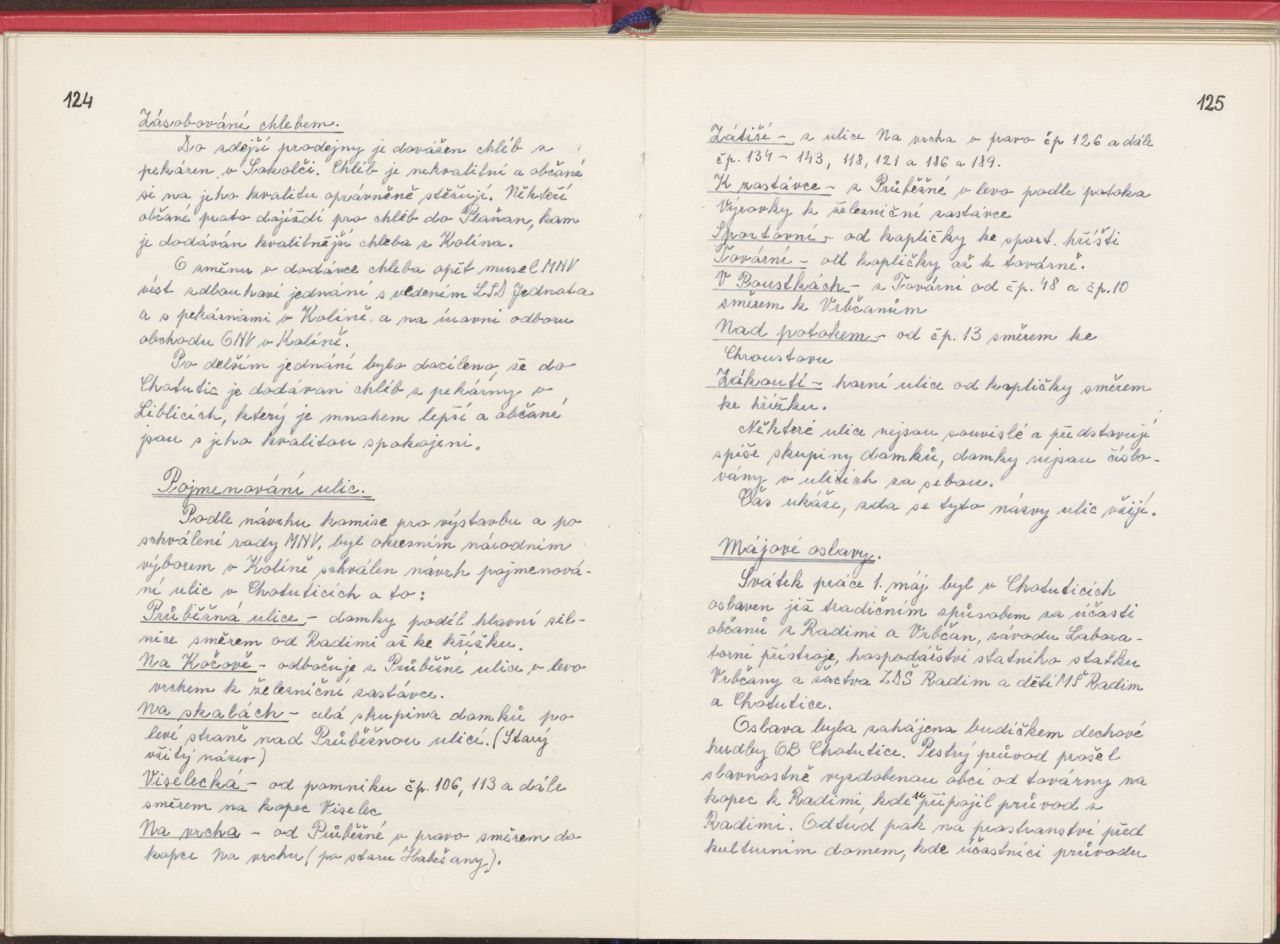 124
Zásobování chlebem.
Do zdejší prodejny je dovážen chléb z
pekáren v Sokolči. Chléb je nekvalitní a občané
si na jeho kvalitu oprávněně stěžují. Někteří
občané proto dojíždí pro chléb do Plaňan, kam
je dodáván kvalitnější chleba z Kolína.
O změnu v dodávce chleba opět musel MNV
vést zdlouhavé jednání s vedením LSD Jednota
a s pekárnami v Kolíně a na úrovni odboru
obchodu ONV v Kolíně.
Po delším jednání bylo docíleno, že do
Chotutic je dodávan chléb z pekárny v
Liblicích, který je mnohem lepší a občané
jsou s jeho kvalitou spokojeni.
Pojmenování ulic.
Podle návrhu komise pro výstavbu a po
schválení rady MNV, byl okresním národním
výborem v Kolíně schválen návrh pojmenová-
ní ulic v Chotuticích a to:
Průběžná ulice - domky podél hlavní sil-
nice směrem od Radimi až ke křížku.
Na Kočově - odbočuje z Průběžné ulice v levo
vrchem k železniční zastávce.
Na skalách - celá skupina domků po
levé straně nad Průběžnou ulicí. (Starý
vžitý název)
Viselecká - od pomníku čp. 106, 113 a dále
směrem na kopec Viselec
Na vrcha - od Průběžné v pravo směrem do
kopce Na vrchu (po staru Habešany).
125
Zátiší - z ulice Na vrcha v pravo čp 126 a dále
čp. 134 - 143, 118, 121 a 186 a 189.
K zastávce - z Průběžné v levo podle potoka
Výrovky k železniční zastávce
Sportovní - od kapličky ke sport. hřišti
Tovární - od kapličky až k továrně.
V Boustkách - z Tovární od čp. 48 a čp. 10
směrem k Vrbčanům
Nad potokem - od čp. 13 směrem ke
Chroustovu
Zákoutí - horní ulice od kapličky směrem
ke křížku.
Některé ulice nejsou souvislé a představují
spíše skupiny domků, domky nejsou číslo-
vány v ulicích za sebou.
Čas ukáže, zda se tyto názvy ulic vžijí.
Májové oslavy.
Svátek práce 1. máj byl v Chotuticích
oslaven již tradičním způsobem za účasti
občanů z Radimi a Vrbčan, závodu Labora-
torní přístroje, hospodářství státního statku
Vrbčany a žactva ZDŠ Radim a dětí MŠ Radim
a Chotutice.
Oslava byla zahájena budíčkem dechové
hudby OB Chotutice. Pestrý průvod prošel
slavnostně vyzdobenou obcí od továrny na
kopec k Radimi, kde se připojil průvod z
Radimi. Odtud pak na prostranství před
kulturním domem, kde účastníci průvodu